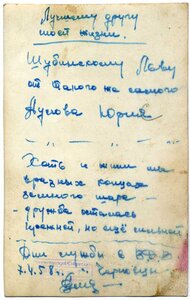 Лучшему другу
моей жизни.
Шубинскому Льву
от такого же самого
Аусова Юрия
Хоть и жили мы
в разных концах
земного шара -
дружба осталась
прежней, но ещё сильней
Дни службы в
7.4.58г.